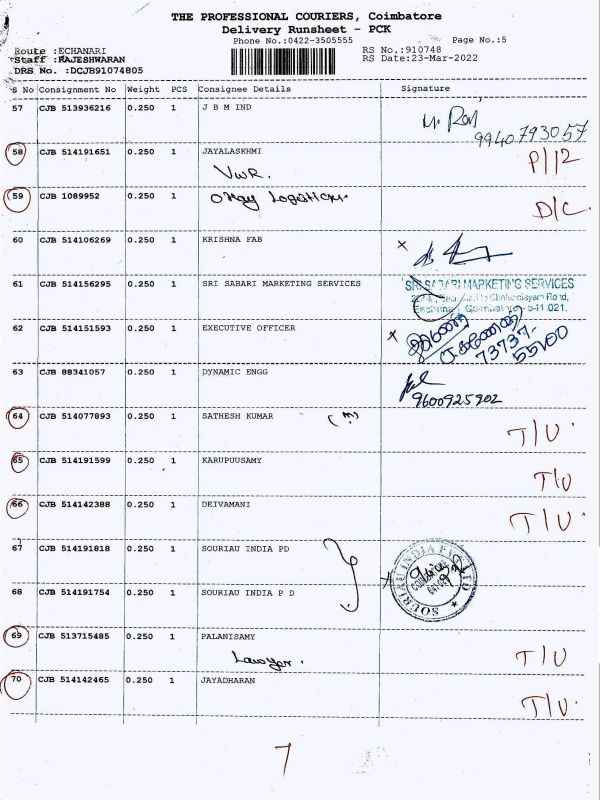 THE PROFESSIONAL COURIERS, Coimbatore
Delivery Runsheet - PCK
Phone No.:0422-3505555 Page No.:5
Route :ECHANARI RS No.:910748
Staff :RAJESHWARAN RS Date:23-Mar-2022
DRS No. :DCJB91074805
S No Consignment No Weight PCS Consignee Details Signature
57 CJB 513936216 0.250 1 J B M IND
9940793057
58 CJB 514191651 0.250 1 JAYALASKHMI P/12
VWR.
59 CJB 1089952 0.250 1 Okay Logistics D/C.
60 CJB 514106269 0.250 1 KRISHNA FAB x
61 CJB 514156295 0.250 1 SRI SABARI MARKETING SERVICES SRI SABARI MARKETING SERVICES
641 021.
62 CJB 514151593 0.250 1 EXECUTIVE OFFICER x
73737-
55100
63 CJB 88341057 0.250 1 DYNAMIC ENGG
9600925902
64 CJB 514077893 0.250 1 SATHESH KUMAR T/U
65 CJB 514191599 0.250 1 KARUPUUSAMY T/U
66 CJB 514142388 0.250 1 DEIVAMANI T/U
67 CJB 514191818 0.250 1 SOURIAU INDIA PD
SOURIAU INDIA PVT LTD
68 CJB 514191754 0.250 1 SOURIAU INDIA P D
69 CJB 513715485 0.250 1 PALANISAMY T/U
Lawyer.
70 CJB 514142465 0.250 1 JAYADHARAN T/U.
7